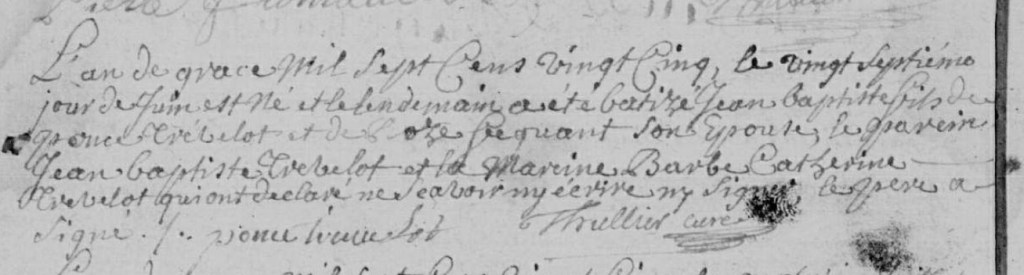 L'an de grace Mil Sept Cens vingt Cinq, le vingt Septiéme
jour de Juin est Né et le lendemain a été batizé Jean baptiste fils de
ponce Trévelot et de Roze Sequant son Epouse, le parein
Jean baptiste Trevelot et la Mareine Barbe Catherine
Trevelot qui ont declaré ne Scavoir ny écrire ny Signer, le pere a
Signé ./. ponce trevelot Thullier curé